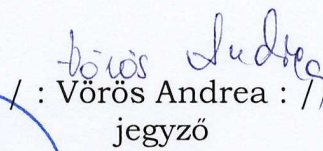 Vörös Andrea
/ : Vörös Andrea : /
jegyző